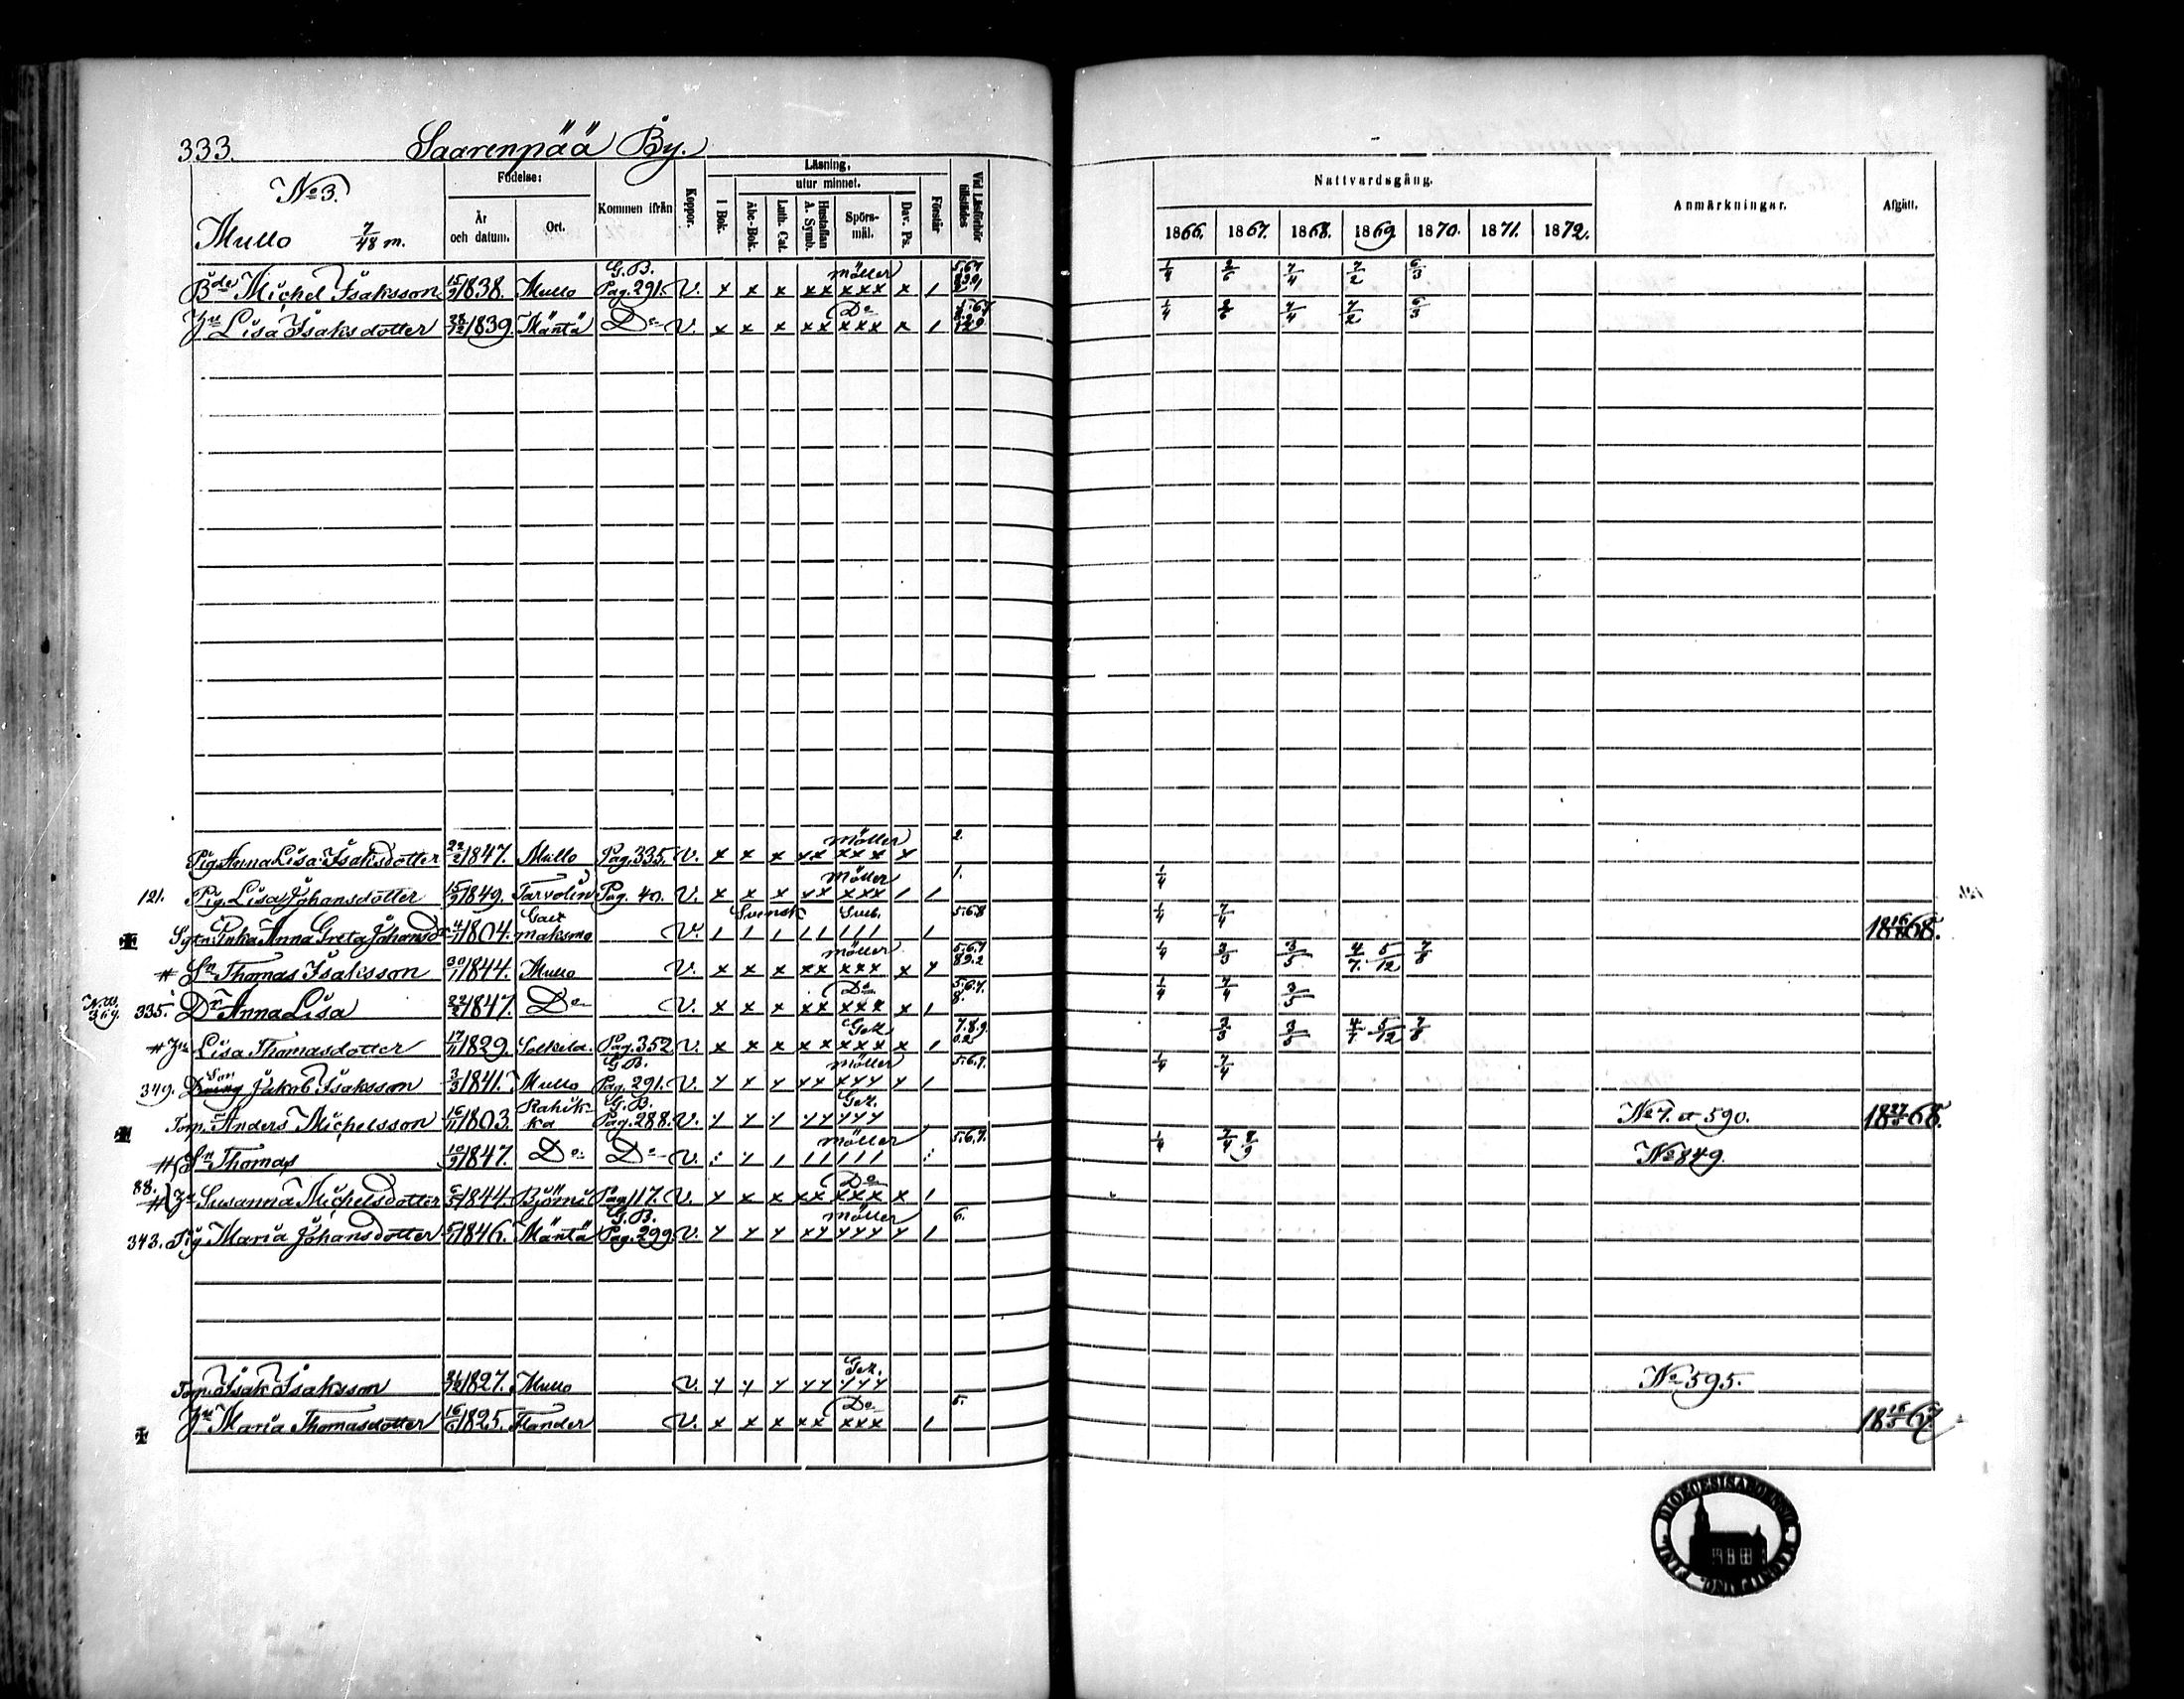 333. Saarenpää By.
No 3.
Mullo 7/48 m.
Födelse:
År och datum.
Ort.
Kommen ifrån
Koppor.
Läsning,
utur minnet.
I Bok.
Abc-Bok.
Luth. Cat.
Hustaflan A. Symb.
Spörsmål.
Dav. Ps.
Förstår
Vid Läsförhör tillstädes
Nattvardsgång.
1866. 1867. 1868. 1869. 1870. 1871. 1872.
Anmärkningar.
Afgått.
Bde Michel Isaksson 15/9 1838. Mullo G. B. Pag. 291. V. x x x x x Möller x x x x / 1/4 2/6 7/4 7/2 6/3
Hu Lisa Isaksdotter 1839. Mäntä Do V. x x x x x Do x x x x / 1/4 2/6 7/4 7/2 6/3
Pig. Anna Lisa Isaksdotter 22/2 1847. Mullo Pag. 335. V. x x x x x Möller x x x x 2.
121. Pig. Lisa Johansdotter 15/9 1849. Tarvolin Pag. 40. V. x x x x x Möller x x x / / 1. 1/4
Enka Anna Greta Johansd 1804. V. Svensk / / / / / / / / / 5.6.8 1/4 7/4 18 68.
# Sn Thomas Isaksson 30/1 1844. Mullo V. x x x x x Möller x x x x 5.6.7 89.2 1/4 3/3 3/5 4/7. 5/12 7/8
335. Dr Anna Lisa 22/2 1847. Do V. x x x x x Do x x x x / 5.6.7. 8. 1/4 7/4 3/5
# Hu Lisa Thomasdotter 17/11 1829. Pag. 352 V. x x x x x Gez. x x x x / 7.8.9 3/3 3/5 4/7. 5/12 7/8
349. Son Jakob Isaksson 3/3 1841. Mullo G. B. Pag. 291. V. x x x x x Möller x x x x / 5.6.7. 1/4 7/4
Torp. Anders Michelsson 16/11 1803. Kahikka G. B. Pag. 288. V. Gez. No 7. et 590. 18 27/5 68.
# Sn Thomas 1847. Do Do V. Möller 5.6.7. 1/4 7/4 No 849.
88. # Hu Susanna Michelsdotter 6/5 1844. Björnä Pag 117. V. x x x x x Do x x x x /
343. Pig Maria Johansdotter 1846. Mäntä G. B. Pag. 299. V. x x x x x Möller x x x x / 6.
Torp. Isak Isaksson 1827. Mullo V. Gez. No 595.
Hu Maria Thomasdotter 16/6 1825. Flander V. x x x x x Do x x x / 5. 18 67.